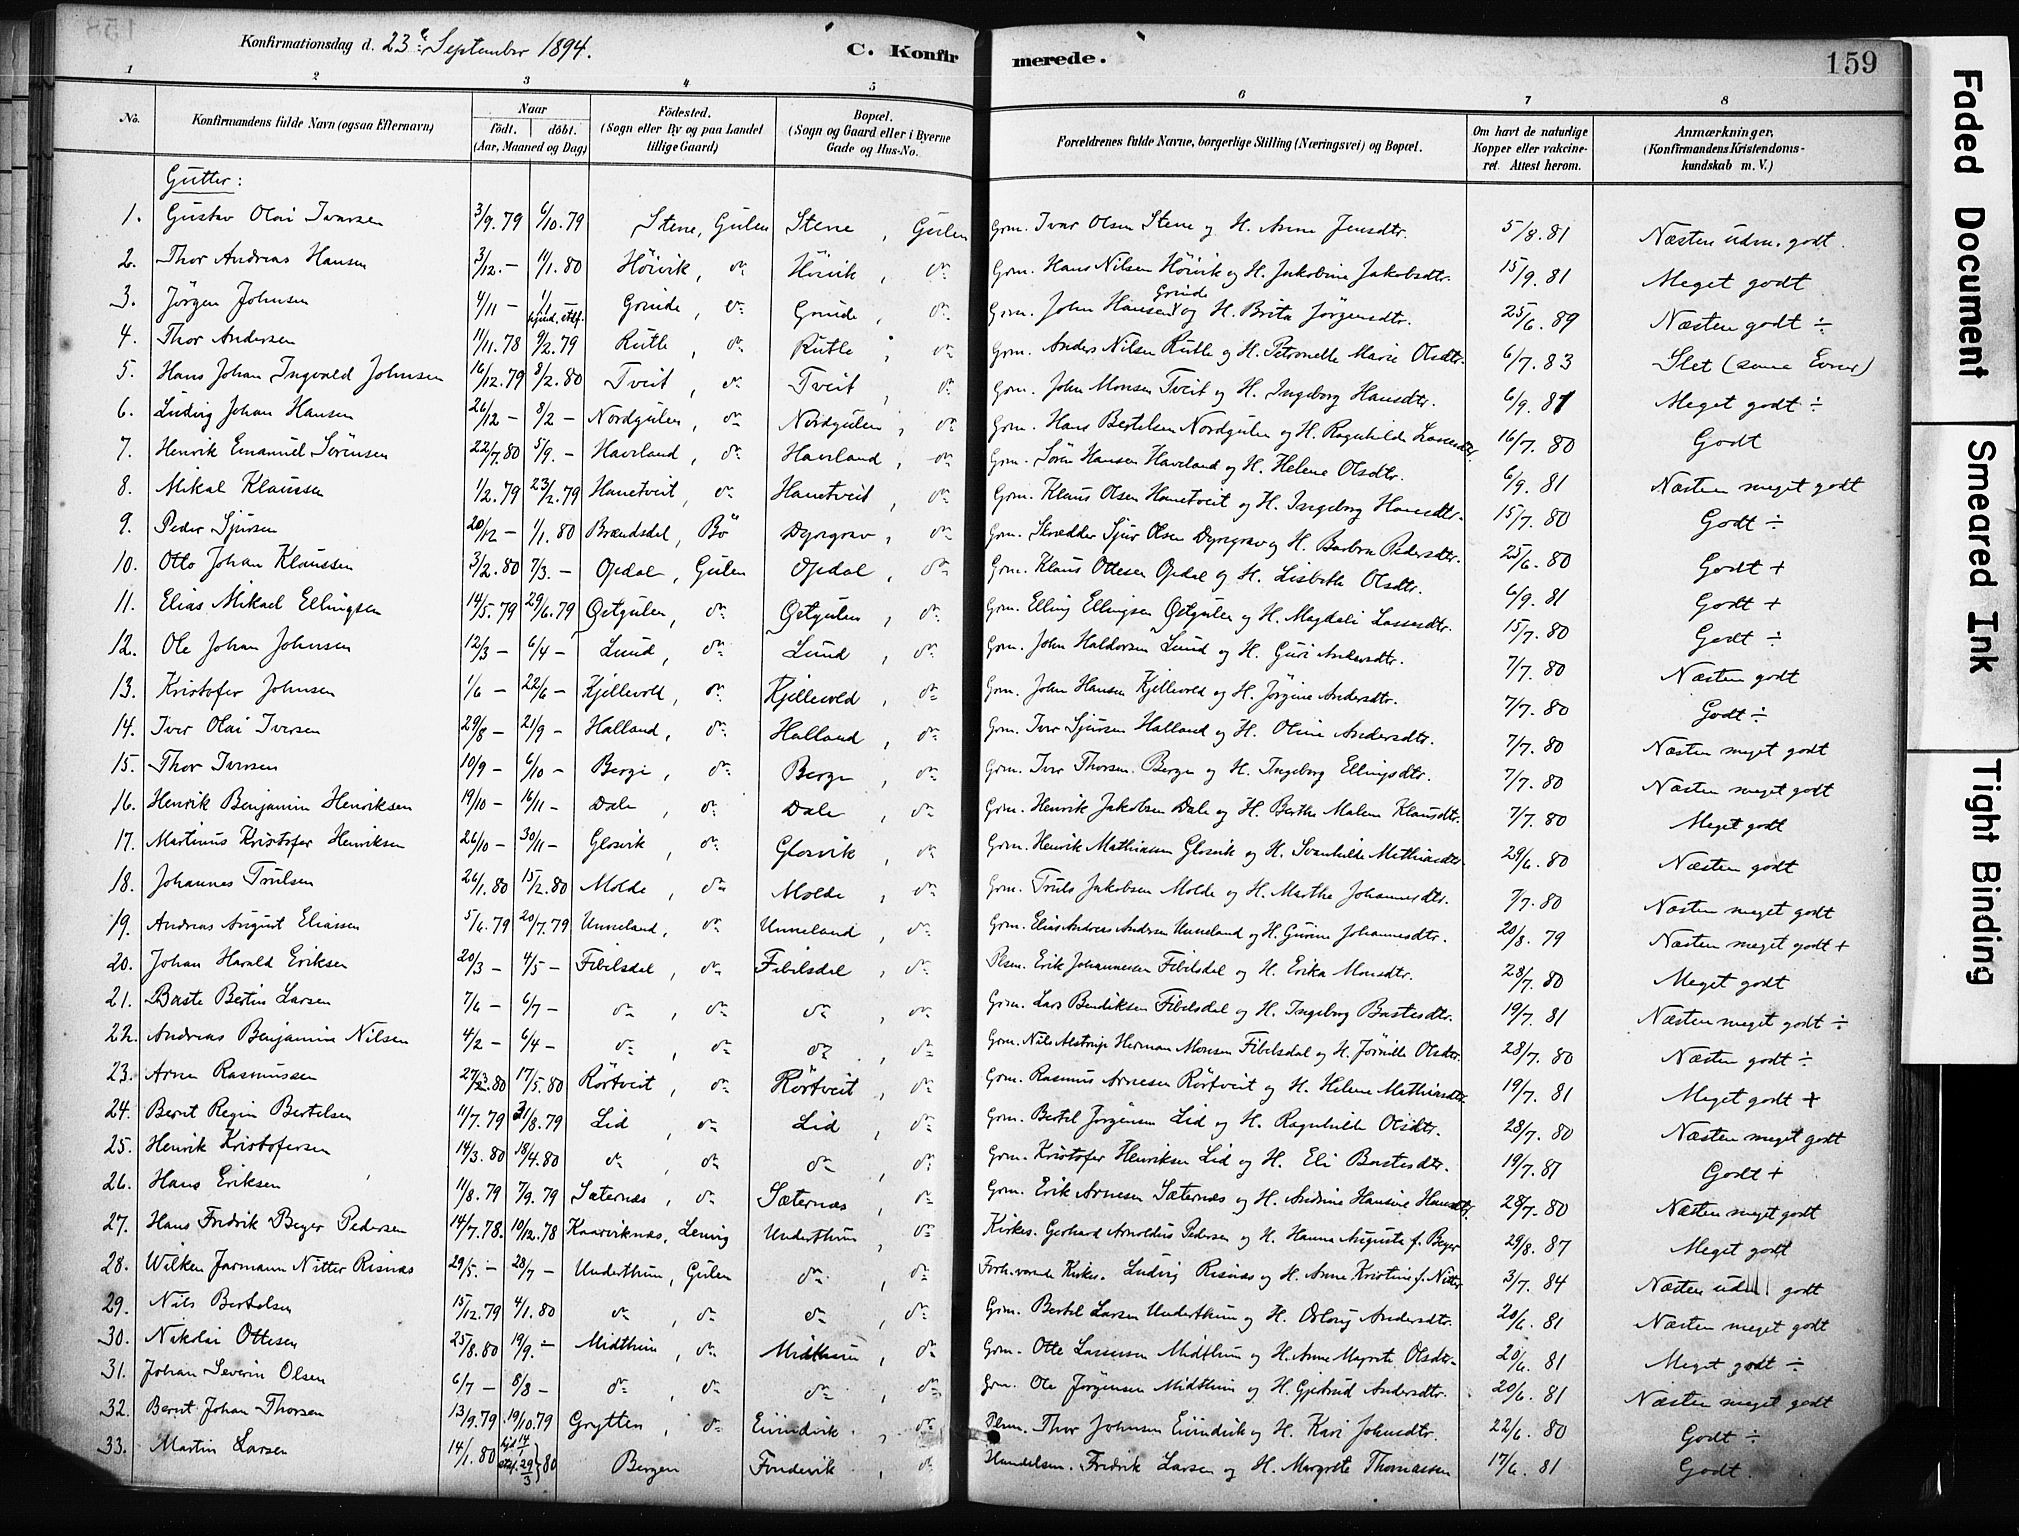 Konfirmationsdag d. 23de September 1894.
C. Konfirmerede.
159
1 2 3 4 5 6 7 8
No. | Konfirmandens fulde Navn (ogsaa Efternavn) | Naar födt. döbt. (Aar, Maaned og Dag) | Födested. (Sogn eller By og paa Landet tillige Gaard) | Bopæl. (Sogn og Gaard eller i Byerne Gade og Hus-No. | Forældrenes fulde Navne, borgerlige Stilling (Næringsvei) og Bopæl. | Om havt de naturlige Kopper eller vakcineret. Attest herom. | Anmærkninger. (Konfirmandens Kristendomskundskab m. V.)
Gutter:
1. Gustav Olai Ivarsen 3/9.79 6/10.79 Stene, Gulen Stene, Gulen Grm. Ivar Olsen Stene og H. Anne Jensdtr. 5/8.81 Næsten udm. godt.
2. Thor Andreas Hansen 3/12.- 11/1.80 Höivik, do Höivik, do Grm. Hans Nilsen Höivik og H. Jakobine Jakobsdtr. 15/9.81 Meget godt
3. Jörgen Johnsen 4/11 - 1/1 - Grinde, do Grinde, do Grm. John Hansen Grinde og H. Brita Jörgensdtr. 25/6.89 Næsten godt ÷
4. Thor Andersen 11/11.78 9/2.79 Rutle, do Rutle, do Grm. Anders Nilsen Rutle og H. Petronelle Marie Olsdtr. 6/7.83 Slet (svage Evner)
5. Hans Johan Ingvald Johnsen 16/12.79 8/2.80 Tveit, do Tveit, do Grm. John Monsen Tveit og H. Ingeborg Hansdtr. 6/9.81 Meget godt ÷
6. Ludvig Johan Hansen 26/12 - 8/2 - Nordgulen, do Nordgulen, do Grm. Hans Bertelsen Nordgulen og H. Ragnhilde Lassesdtr. 16/7.80 Godt
7. Henrik Emanuel Sörensen 22/7.80 5/9.- Haveland, do Haveland, do Grm. Sören Hansen Haveland og H. Helene Olsdtr. 6/9.81 Næsten meget godt
8. Mikal Klaussen 1/2.79 23/2.79 Hanetveit, do Hanetveit, do Grm. Klaus Olsen Hanetveit og H. Ingeborg Hansdtr. 15/7.80 Godt ÷
9. Peder Sjursen 20/12 - 1/1.80 Brændsdal, Bö Dyngrav, do Grm. Skrædder Sjur Olsen Dyngrav og H. Barbra Pedersdtr. 25/6.80 Godt +
10. Otto Johan Klaussen 3/2.80 7/3.- Opdal, Gulen Opdal, do Grm. Klaus Ottesen Opdal og H. Lisbeth Olsdtr. 6/9.81 Godt +
11. Elias Mikael Ellingsen 14/5.79 29/6.79 Östgulen, do Östgulen, do Grm. Elling Ellingsen Östgulen og H. Magdeli Lassesdtr. 15/7.80 Godt ÷
12. Ole Johan Johnsen 12/3 - 6/4 - Lund, do Lund, do Grm. John Haldorsen Lund og H. Guri Andersdtr. 7/7.80 Næsten godt
13. Kristofer Johnsen 1/6 - 22/6 - Kjellevold, do Kjellevold, do Grm. John Hansen Kjellevold og H. Jörgine Andersdtr. 7/7.80 Godt ÷
14. Iver Olai Iversen 29/8 - 21/9 - Halland, do Halland, do Grm. Iver Sjursen Halland og H. Oline Andersdtr. 7/7.80 Næsten meget godt
15. Thor Iversen 10/9 - 6/10 - Berge, do Berge, do Grm. Iver Thorsen Berge og H. Ingeborg Ellingsdtr. 7/7.80 Næsten meget godt
16. Henrik Benjamin Henriksen 19/10 - 16/11 - Dale, do Dale, do Grm. Henrik Jakobsen Dale og H. Berthe Malene Klausdtr. 7/7.80 Meget godt
17. Martinus Kristofer Henriksen 26/10 - 30/11 - Glosvik, do Glosvik, do Grm. Henrik Mathiassen Glosvik og H. Svanhilde Mathiasdtr. 29/6.80 Næsten godt
18. Johannes Trulsen 26/1.80 15/2.80 Molde, do Molde, do Grm. Truls Jakobsen Molde og H. Marthe Johannesdtr. 7/7.80 Næsten meget godt
19. Andreas August Eliassen 5/6.79 20/7.79 Unneland, do Unneland, do Grm. Elias Andreas Andersen Unneland og H. Gurine Johannesdtr. 20/8.79 Næsten meget godt +
20. Johan Harald Eriksen 20/3 - 4/5 - Fibelsdal, do Fibelsdal, do Plsm. Erik Johannessen Fibelsdal og H. Erika Monsdtr. 28/7.80 Meget godt
21. Baste Bertin Larsen 7/6 - 6/7 - do, do do, do Grm. Lars Bendiksen Fibelsdal og H. Ingeborg Bastesdtr. 19/7.81 Næsten meget godt ÷
22. Andreas Benjamin Nilsen 4/2 - 6/4 - do, do do, do Grm. Nils Alstrup Herman Monsen Fibelsdal og H. Jörnille Olsdtr. 28/7.80 Næsten godt ÷
23. Arne Rasmussen 27/3.80 17/5.80 Rörtveit, do Rörtveit, do Grm. Rasmus Arnesen Rörtveit og H. Helene Mathiasdtr. 19/7.81 Meget godt +
24. Bernt Regin Bertelsen 11/7.79 31/8.79 Lid, do Lid, do Grm. Bertel Jörgensen Lid og H. Ragnhilde Olsdtr. 28/7.80 Næsten meget godt
25. Henrik Kristofersen 14/3.80 18/4.80 do do do, do Grm. Kristofer Henriksen Lid og H. Eli Bastesdtr. 19/7.81 Godt +
26. Hans Eriksen 11/8.79 7/9.79 Sæternæs, do Sæternæs, do Grm. Erik Arnesen Sæternæs og H. Andrine Hansine Hansdtr. 28/7.80 Næsten meget godt
27. Hans Fredrik Beyer Pedersen 14/7.78. 10/12.78 Kaarviknæs, Lenvig Underthun, do Kirkes. Gerhard Arnoldus Pedersen og H. Hanna Augusta f. Beyer 29/8.87 Meget godt
28. Wilken Jarmann Nitter Risnæs 29/5.- 28/7 - Underthun, Gulen do, do Forh.værende Kirkes. Ludvig Risnæs og H. Anne Kristine f. Nitter 3/7.84 Næsten udm. godt
29. Nils Bertelsen 15/12.79 4/1.80 do, do do, do Grm. Bertel Larsen Underthun og H. Oslaug Andersdtr. 20/6.81 Næsten meget godt
30. Nikolai Ottesen 25/8.80 19/9.- Midthun, do Midthun, do Grm. Otte Lassesen Midthun og H. Anne Margrete Olsdtr. 20/6.81 Meget godt ÷
31. Johan Severin Olsen 6/7 - 8/8 - do, do do, do Grm. Ole Jörgensen Midthun og H. Gjertrud Andersdtr. 20/6.81 Næsten meget godt
32. Bernt Johan Thorsen 13/9.79 19/10.79 Grytten, do Eivindvik, do Plsm. Thor Johnsen Eivindvik og H. Kari Johnsdtr. 22/6.80 Godt ÷
33. Martin Larsen 14/1.80 hjd 14/1 stdf. 29/3 } 80 Bergen Fondevik, do Handelsm. Fredrik Larsen og H. Margrete Thomassen 17/6.81 Godt.
Faded Document
Smeared Ink
Tight Binding